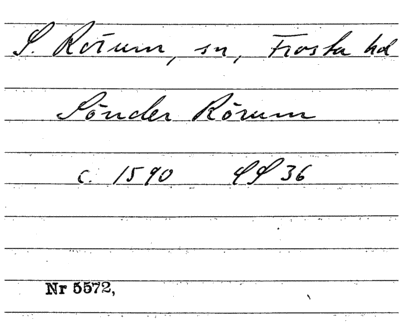 S. Rörum, sn, Frosta hd
Sönder Rörum
c. 1590 36
Nr 5572,